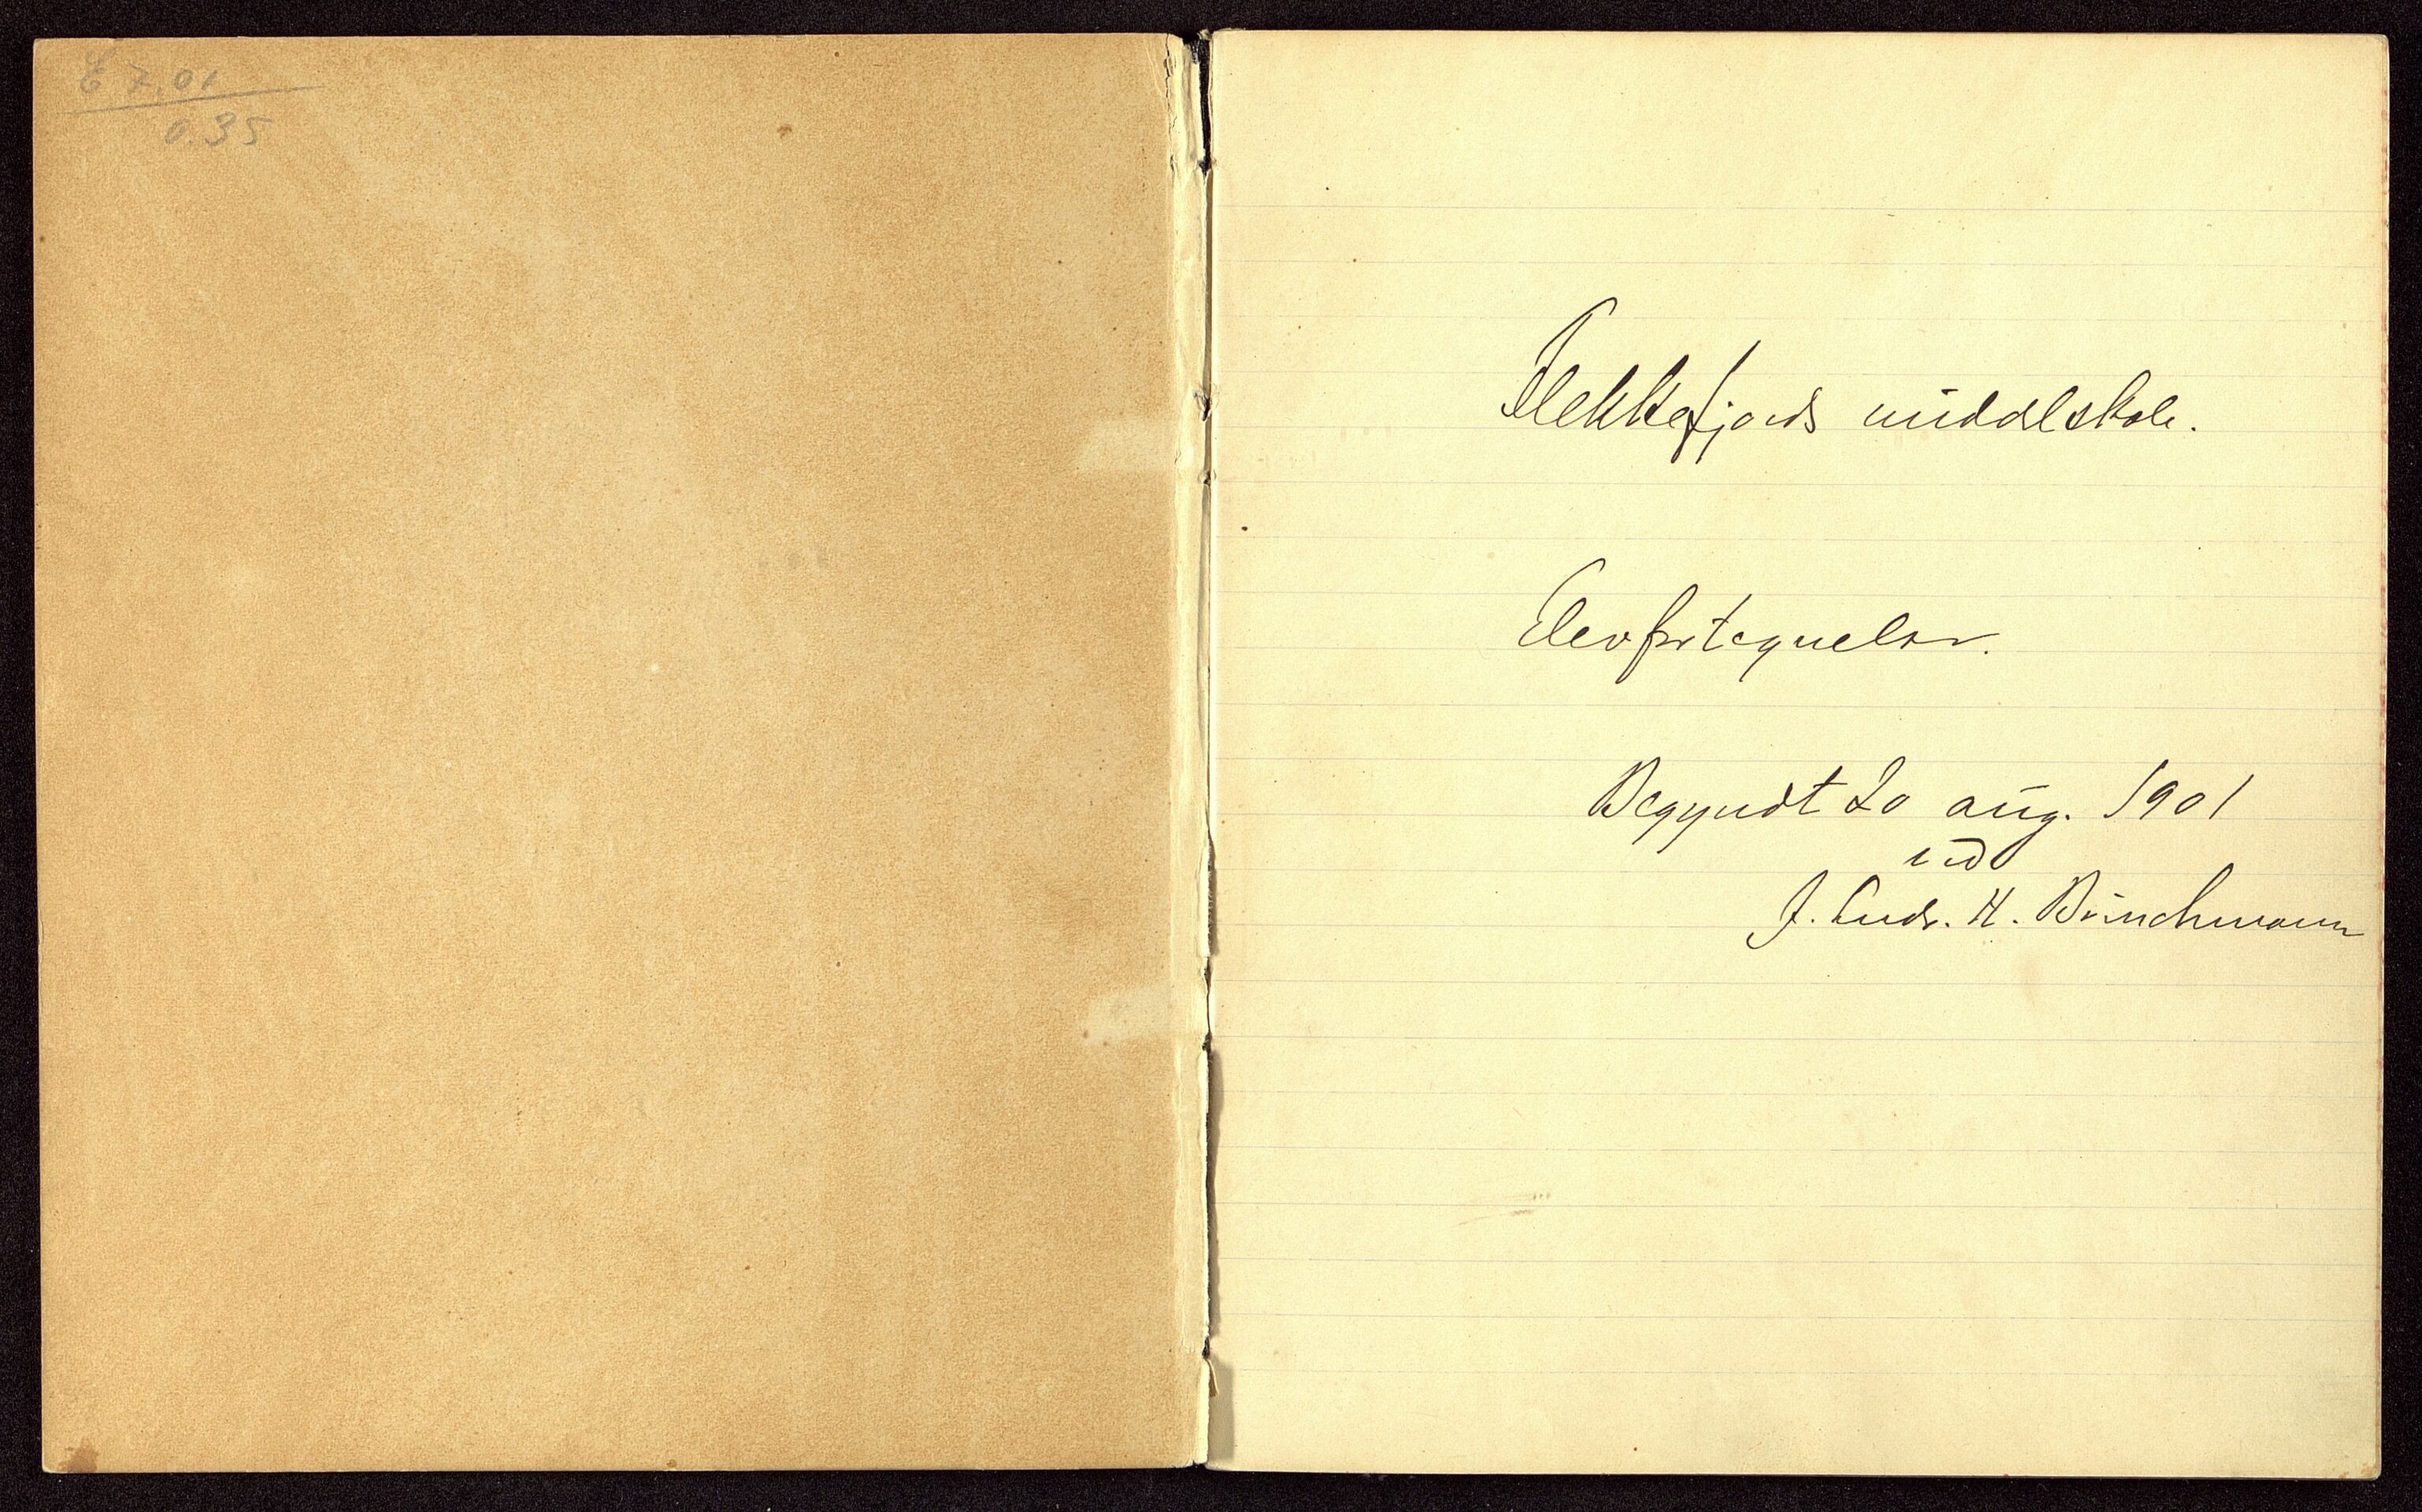 E 7.01
0.35
Flekkefjords middelskole.
Elevfortegnelser.
Begyndt 20 aug. 1901
ved
J. Andr. H. Brinchmann